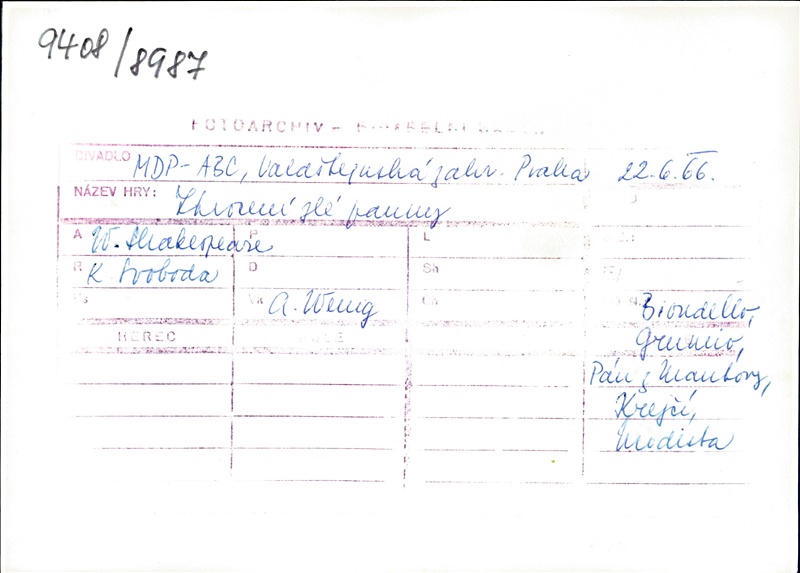 9408/8987
FOTOARCHIV –
DIVADLO MDP-ABC, Valdštejnská zahr. Praha 22.6.66.
NÁZEV HRY: Zkrocení zlé panny
A W. Shakespeare P L
R K. Svoboda D Sh
Vs Vk A. Wenig Ch Biondello,
HEREC Grumio,
Pán z Mantovy,
Krejčí,
Modista